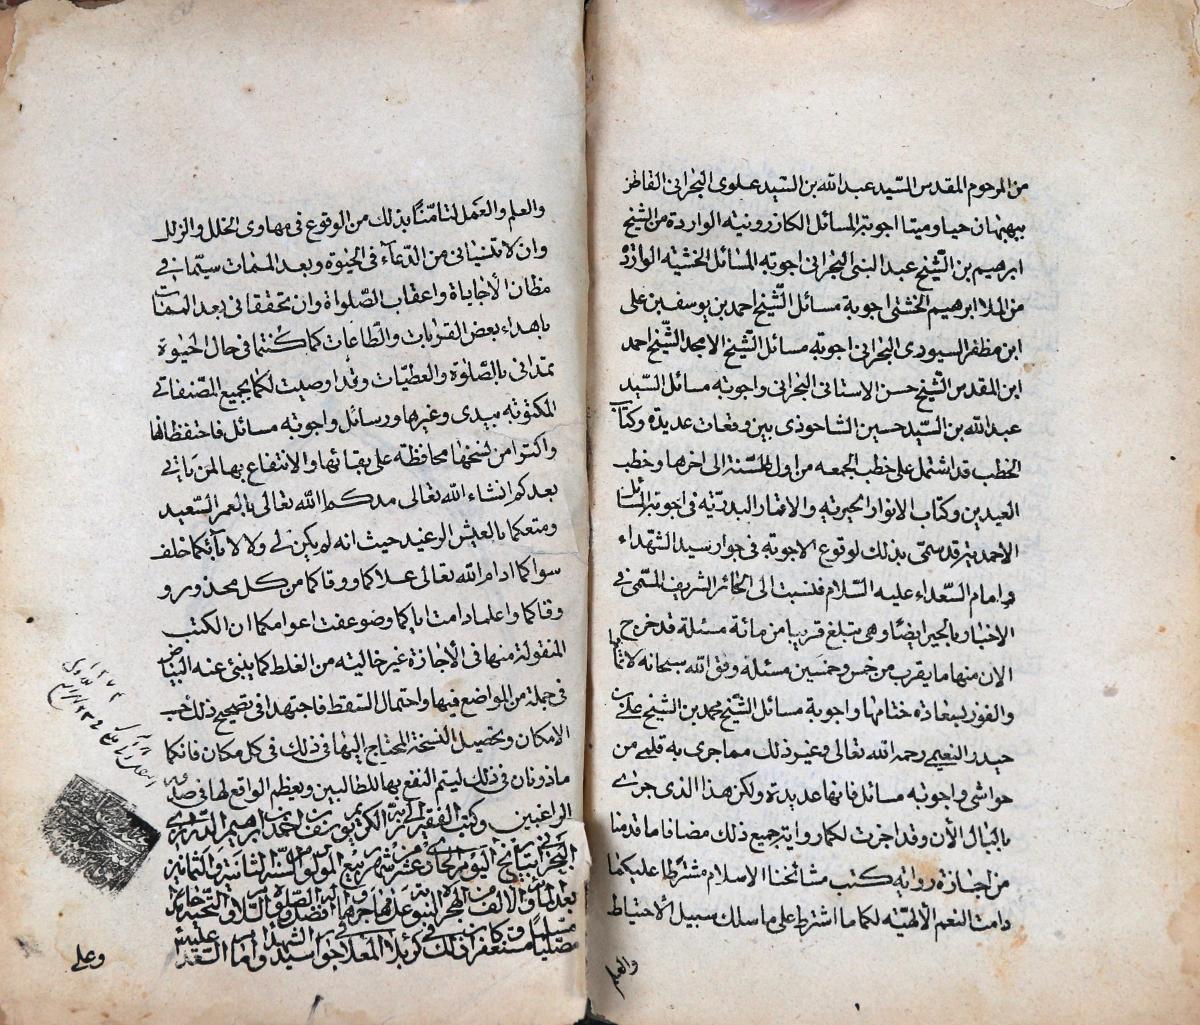 من المرحوم المقدس السيد عبد الله بن السيد علوى البحرانى القاطن
ببهبهان حيا وميتا اجوبة المسائل الكازرونيه الواردة من الشيخ
ابرهيم بن الشيخ عبد النبى البحرانى اجوبه المسائل الخشتيه الوارده
من الملا ابرهيم الخشتى اجوبة مسائل الشيخ احمد بن يوسف بن على
ابن مظفر السيورى البحرانى اجوبه مسائل الشيخ الامجد الشيخ احمد
ابن المقدس الشيخ حسن الدستانى البحرانى واجوبه مسائل السيد
عبد الله بن السيد حسين الشاخورى بين وقعات عديده وكتاب
الخطب قد اشتمل على خطب الجمعه من اول السنة الى اخرها وخطب
العيدين وكتاب الانوار الحيريه والاقمار البدريه فى اجوبة المسائل
الاحمديه قد سمى بذلك لوقوع الاجوبه فى جوار سيد الشهداء
وامام السعداء عليه السلام فنسبت الى الحائر الشريف المسمى فى
الاخبار بالحير ايضا وهى تبلغ قريبا من مائة مسئلة قد خرج
الان منها ما يقرب من خمس وخمسين مسئلة وفق الله سبحانه لاتمامها
والفوز بسعادة ختامها واجوبة مسائل الشيخ محمد بن الشيخ على بن
حيدر النعيمى رحمه الله تعالى وغير ذلك مما جرى به قلمى من
حواشى واجوبه مسائل فانها عديدة ولكن هذا الذى جرى
بالبال الأن وقد اجزت لكما رواية جميع ذلك مضافا ما قدمنا
من اجازة روايه كتب مشائخنا الاسلام مشترطا عليكما
دامت النعم الالهيه لكما ما اشترط على ما سلك سبيل الاحتياط
والعلم
والعلم والعمل لتأمنا بذلك من الوقوع فى مهاوى الخلل والزلل
وان لا تنسيانى من الدعاء فى الحيوة وبعد الممات سيما فى
مظان الاجاباة واعقاب الصلواة وان تحققانى بعد الممات
باهداء بعض القربات والطاعات كما كنتما فى حال الحيوة
تمدانى بالصلوة والعطيات وقد اوصيت لكما بجميع المصنفاتى
المكتوبه بيدى وغيرها ورسائل واجوبه مسائل فاحتفظا بها
واكثرا من نسخها محافظة على بقائها والانتفاع بها لمن يأتى
بعدكم انشاء الله تعالى مدكما الله تعالى بالعمر السعيد
ومتعكما بالعيش الرغيد حيث انه لم يكن لى ولا لابائكما خلف
سواكما ادام الله تعالى علاكما ووقاكما من كل محذور و
وقاكما واعلما دامت اياكما وضوعفت اعوامكما ان الكتب
المنقولة منها فى الاجازة غير خاليته من الغلط كما ينبئ عنه البياض
فى جملة من المواضع فيها واحتمال السقط فاجتهدا فى تصحيح ذلك حسب
الامكان وتحصيل النسخة المحتاج اليها فى ذلك فى كل مكان فانكما
ماذونان فى ذلك ليتم النفع بها للطالبين ويعظم الواقع لها فى
الراغبين وكتب الفقير الى ربه الكريم يوسف بن احمد بن ابرهيم الدرازى
البحرانى بتاريخ اليوم الحادى عشر من شهر ربيع المولود السنة الثانيه والثمانين
بعد المائة والالف من الهجرة النبويه على مهاجرها واله افضل الصلوة والسلام والتحيه حامدا
مصليا مستغفرا وكان ذلك فى كربلا المعلا جوار سيد الشهدا وامام السعدا عليه
وعلى